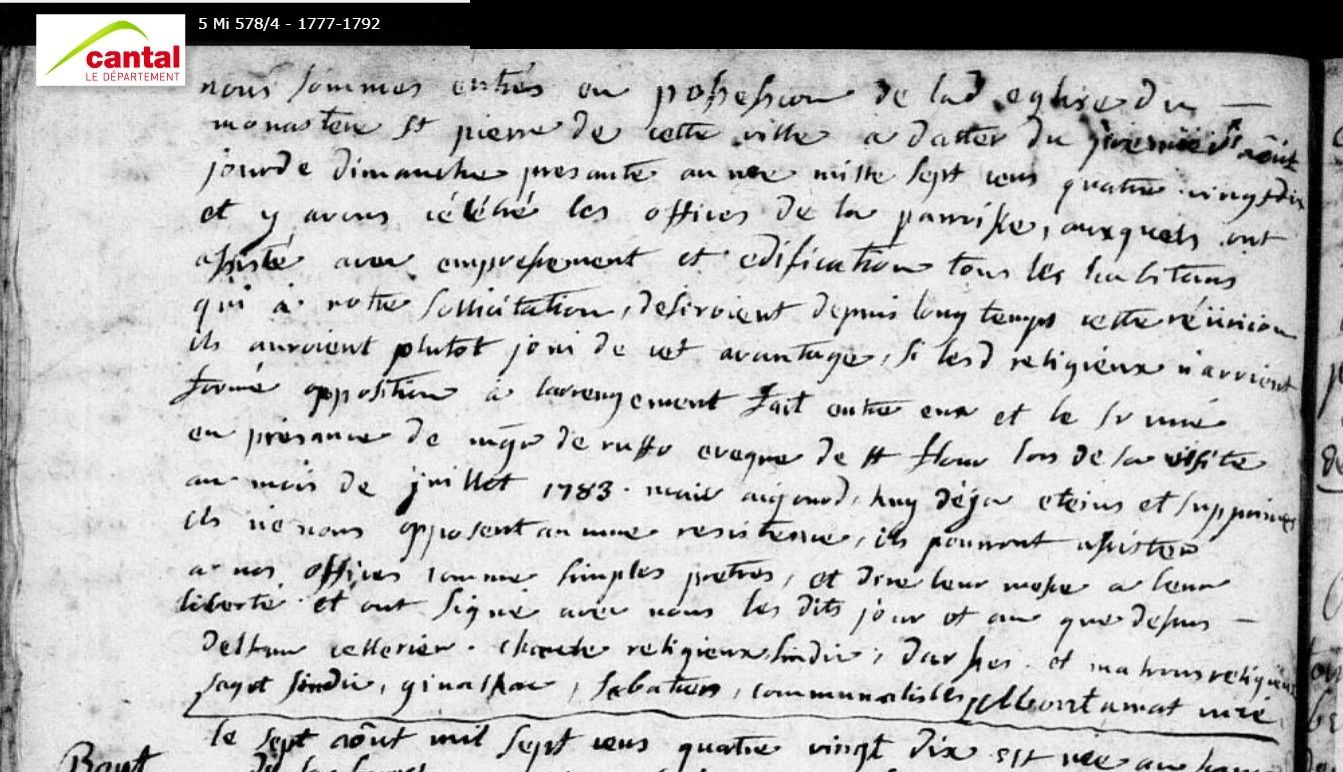 5 Mi 578/4 - 1777-1792
cantal
LE DÉPARTEMENT
nous sommes entrés en possession de lad eglise du
monastere st pierre de cette ville a datter du aôut
jour de dimanche presante annee mille sept cens quatre vingt dix
et y avons célébré les offices de la parroisse, auxquels ont
assisté avec empressement et edification tous les habitans
qui à notre sollicitation, desiroient depuis long temps cette réunion
ils auroient plutot joui de cet avantage, si lesd religieux n'avoient
formé opposition à larrengement fait entre eux et le sr curé
en presance de mgr de ruffo eveque de st flour lors de sa visite
au mois de juillet 1783. mais aujourd'huy déja eteins et supprimés
ils ne nous opposent aucune resistence, ils pourront assister
a nos offices comme simples pretres, et dire leur messe a leur
liberté et ont signé avec nous les dits jour et an que dessus
cellerier. religieux sindic, et religieux
sindic, sabatier, communalistes curé
le sept aôut mil sept cens quatre vingt dix est née
Bapt